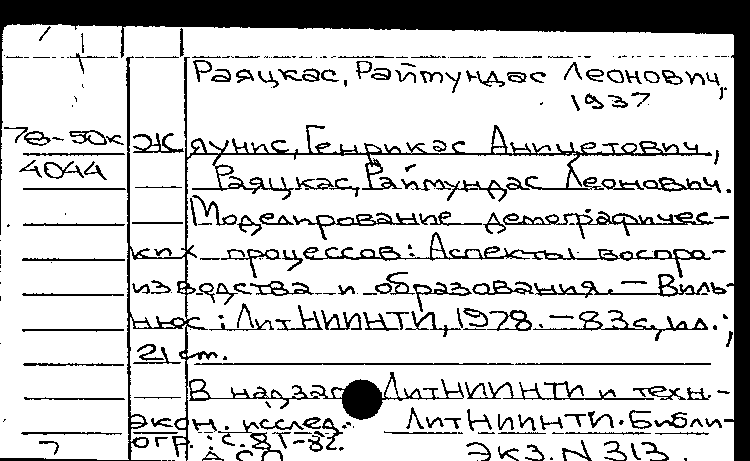 Раяцкас, Раймундас Леонович,
1937
78-50к Жяунис, Генрикас Аницетович,
4044 Раяцкас, Раймундас Леонович.
Моделирование демографичес-
ких процессов: Аспекты воспро-
изводства и образования. — Виль-
нюс: ЛитНИИНТИ, 1978. — 83 с., ил.;
21 см.
В надзаг ЛитНИИНТИ и техн.-
экон. исслед. ЛитНИИНТИ. Библи-
огр.: с. 81-82. Экз. N 313.